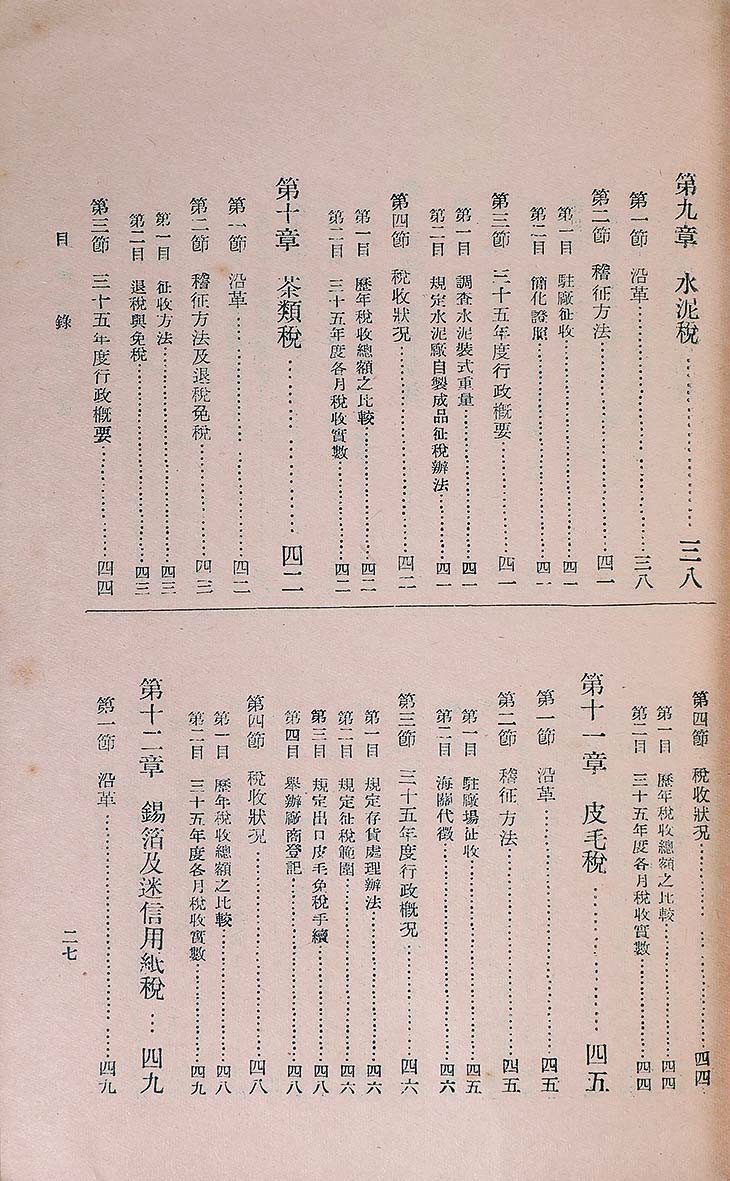 第九章 水泥稅 三八
第一節 沿革 三八
第二節 稽征方法 四一
第一目 駐廠征收 四一
第二目 簡化證照 四一
第三節 三十五年度行政概要 四一
第一目 調查水泥裝式重量 四一
第二目 規定水泥廠自製成品征稅辦法 四一
第四節 稅收狀況 四二
第一目 歷年稅收總額之比較 四二
第二目 三十五年度各月稅收實數 四二
第十章 茶類稅 四二
第一節 沿革 四二
第二節 稽征方法及退稅免稅 四三
第一目 征收方法 四三
第二目 退稅與免稅 四三
第三節 三十五年度行政概要 四四
第四節 稅收狀況 四四
第一目 歷年稅收總額之比較 四四
第二目 三十五年度各月稅收實數 四四
第十一章 皮毛稅 四五
第一節 沿革 四五
第二節 稽征方法 四五
第一目 駐廠場征收 四五
第二目 海關代徵 四六
第三節 三十五年度行政概況 四六
第一目 規定存貨處理辦法 四六
第二目 規定征稅範圍 四六
第三目 規定出口皮毛免稅手續 四八
第四目 舉辦廠商登記 四八
第四節 稅收狀況 四八
第一目 歷年稅收總額之比較 四八
第二目 三十五年度各月稅收實數 四九
第十二章 錫箔及迷信用紙稅 四九
第一節 沿革 四九
目錄 二七